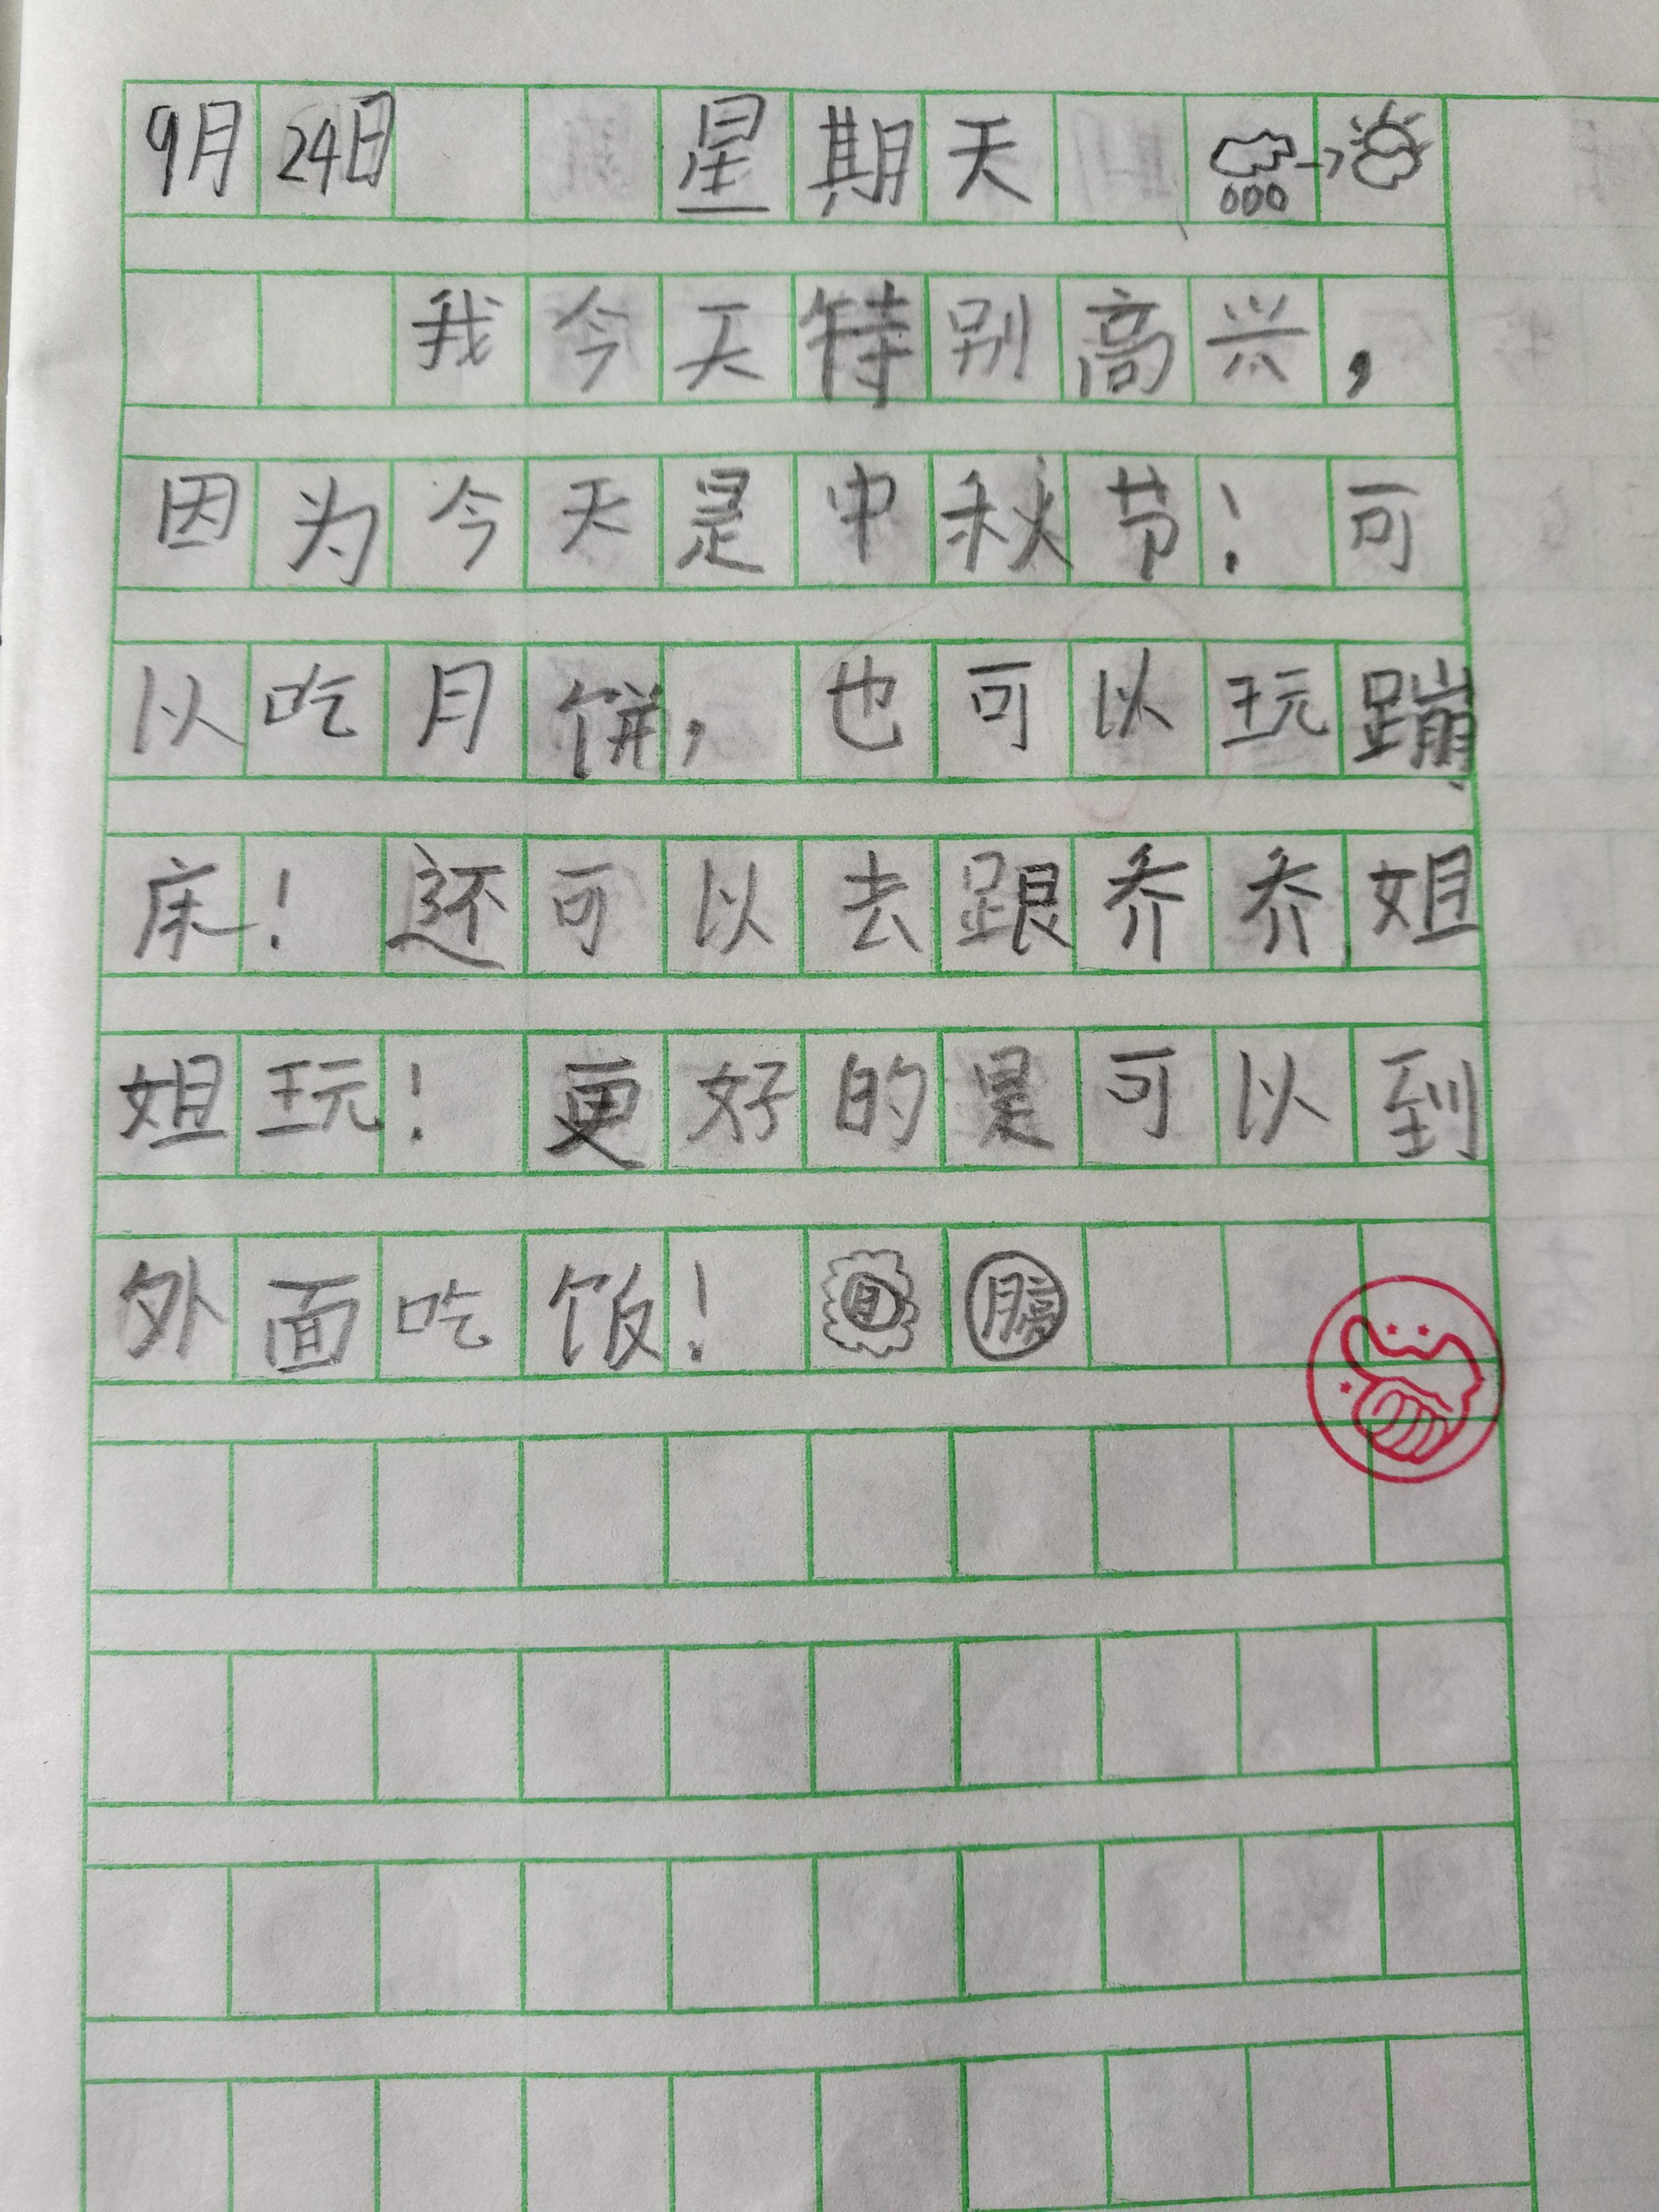 9月24日 星期天
我今天特别高兴，
因为今天是中秋节！可
以吃月饼，也可以玩蹦
床！还可以去跟乔乔姐
姐玩！更好的是可以到
外面吃饭！